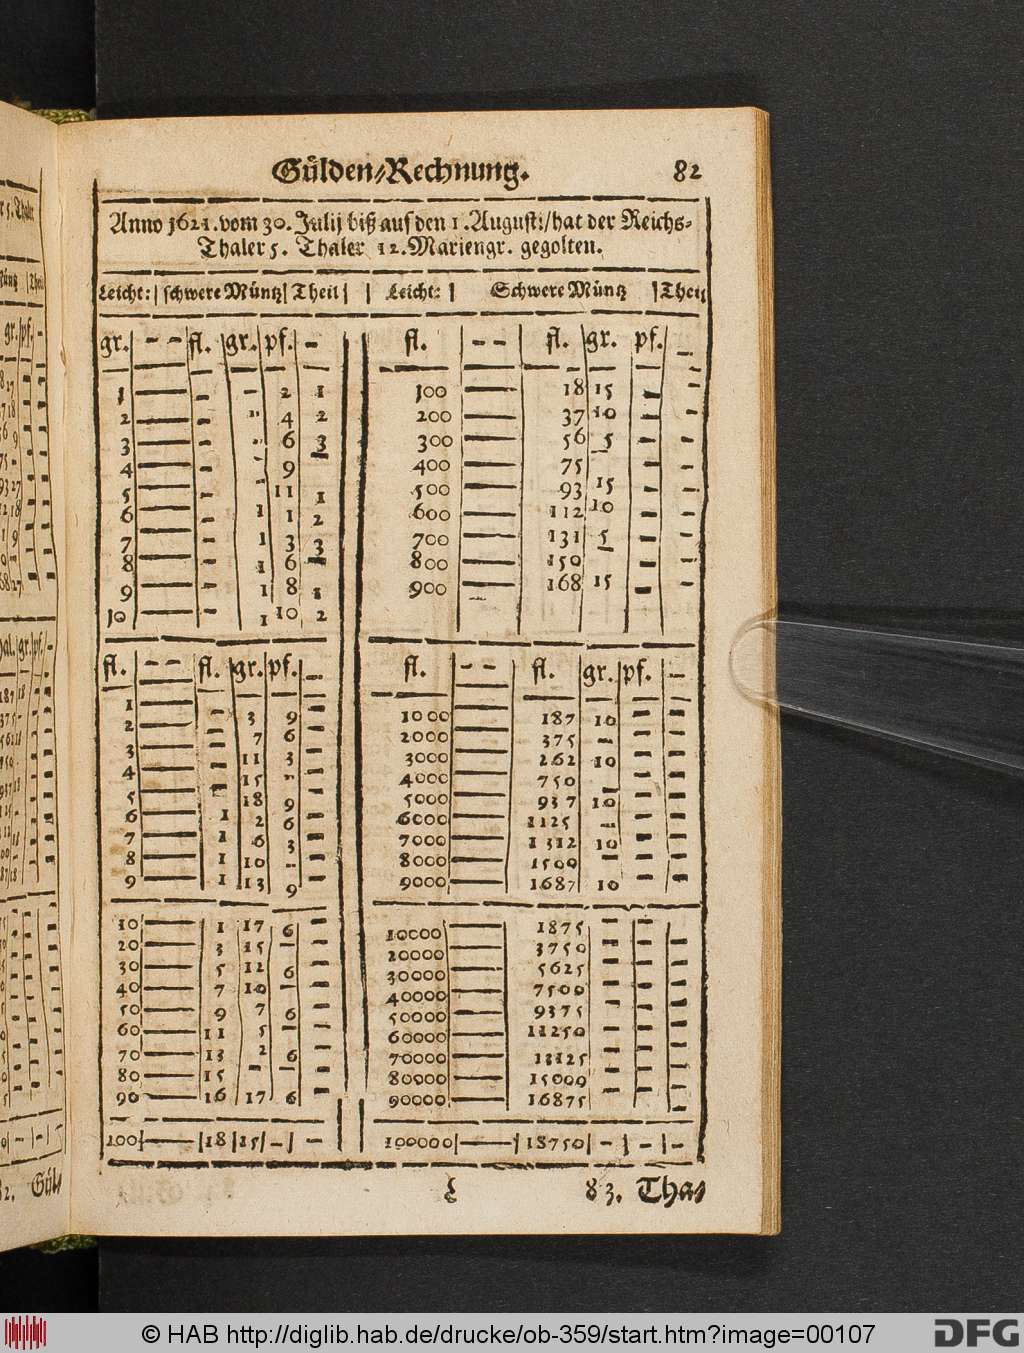 Gülden-Rechnung. 82
Anno 1621. vom 30. Julij biß auf den 1. August:/hat der Reichs-
Thaler 5. Thaler 12. Mariengr. gegolten.
Leicht: | schwere Müntz | Theil | | Leicht: | Schwere Müntz | Theil
gr. — — fl. gr. pf. –
1 — – – 2 1
2 — – " 4 2
3 — – – 6 3
4 — – – 9 –
5 — – – 11 1
6 — – 1 1 2
7 — – 1 3 3
8 — – 1 6 –
9 — – 1 8 1
10 — – 1 10 2
fl. — — fl. gr. pf. –
1 — – 3 9 –
2 — – 7 6 –
3 — – 11 3 –
4 — – 15 " –
5 — – 18 9 –
6 — 1 2 6 –
7 — 1 6 3 –
8 — 1 10 – –
9 — 1 13 9 –
10 — 1 17 6 –
20 — 3 15 – –
30 — 5 12 6 –
40 — 7 10 – –
50 — 9 7 6 –
60 — 11 5 – –
70 — 13 2 6 –
80 — 15 – – –
90 — 16 17 6 –
100 — 18 15 – –
fl. — — fl. gr. pf. –
100 — 18 15 – –
200 — 37 10 – –
300 — 56 5 – –
400 — 75 – – –
500 — 93 15 – –
600 — 112 10 – –
700 — 131 5 – –
800 — 150 – – –
900 — 168 15 – –
fl. — — fl. gr. pf. –
1000 — 187 10 – –
2000 — 375 – – –
3000 — 262 10 – –
4000 — 750 – – –
5000 — 937 10 – –
6000 — 1125 – – –
7000 — 1312 10 – –
8000 — 1500 – – –
9000 — 1687 10 – –
10000 — 1875 – – –
20000 — 3750 – – –
30000 — 5625 – – –
40000 — 7500 – – –
50000 — 9375 – – –
60000 — 11250 – – –
70000 — 13125 – – –
80000 — 15000 – – –
90000 — 16875 – – –
100000 — 18750 – – –
L 83. Tha-
© HAB http://diglib.hab.de/drucke/ob-359/start.htm?image=00107
DFG